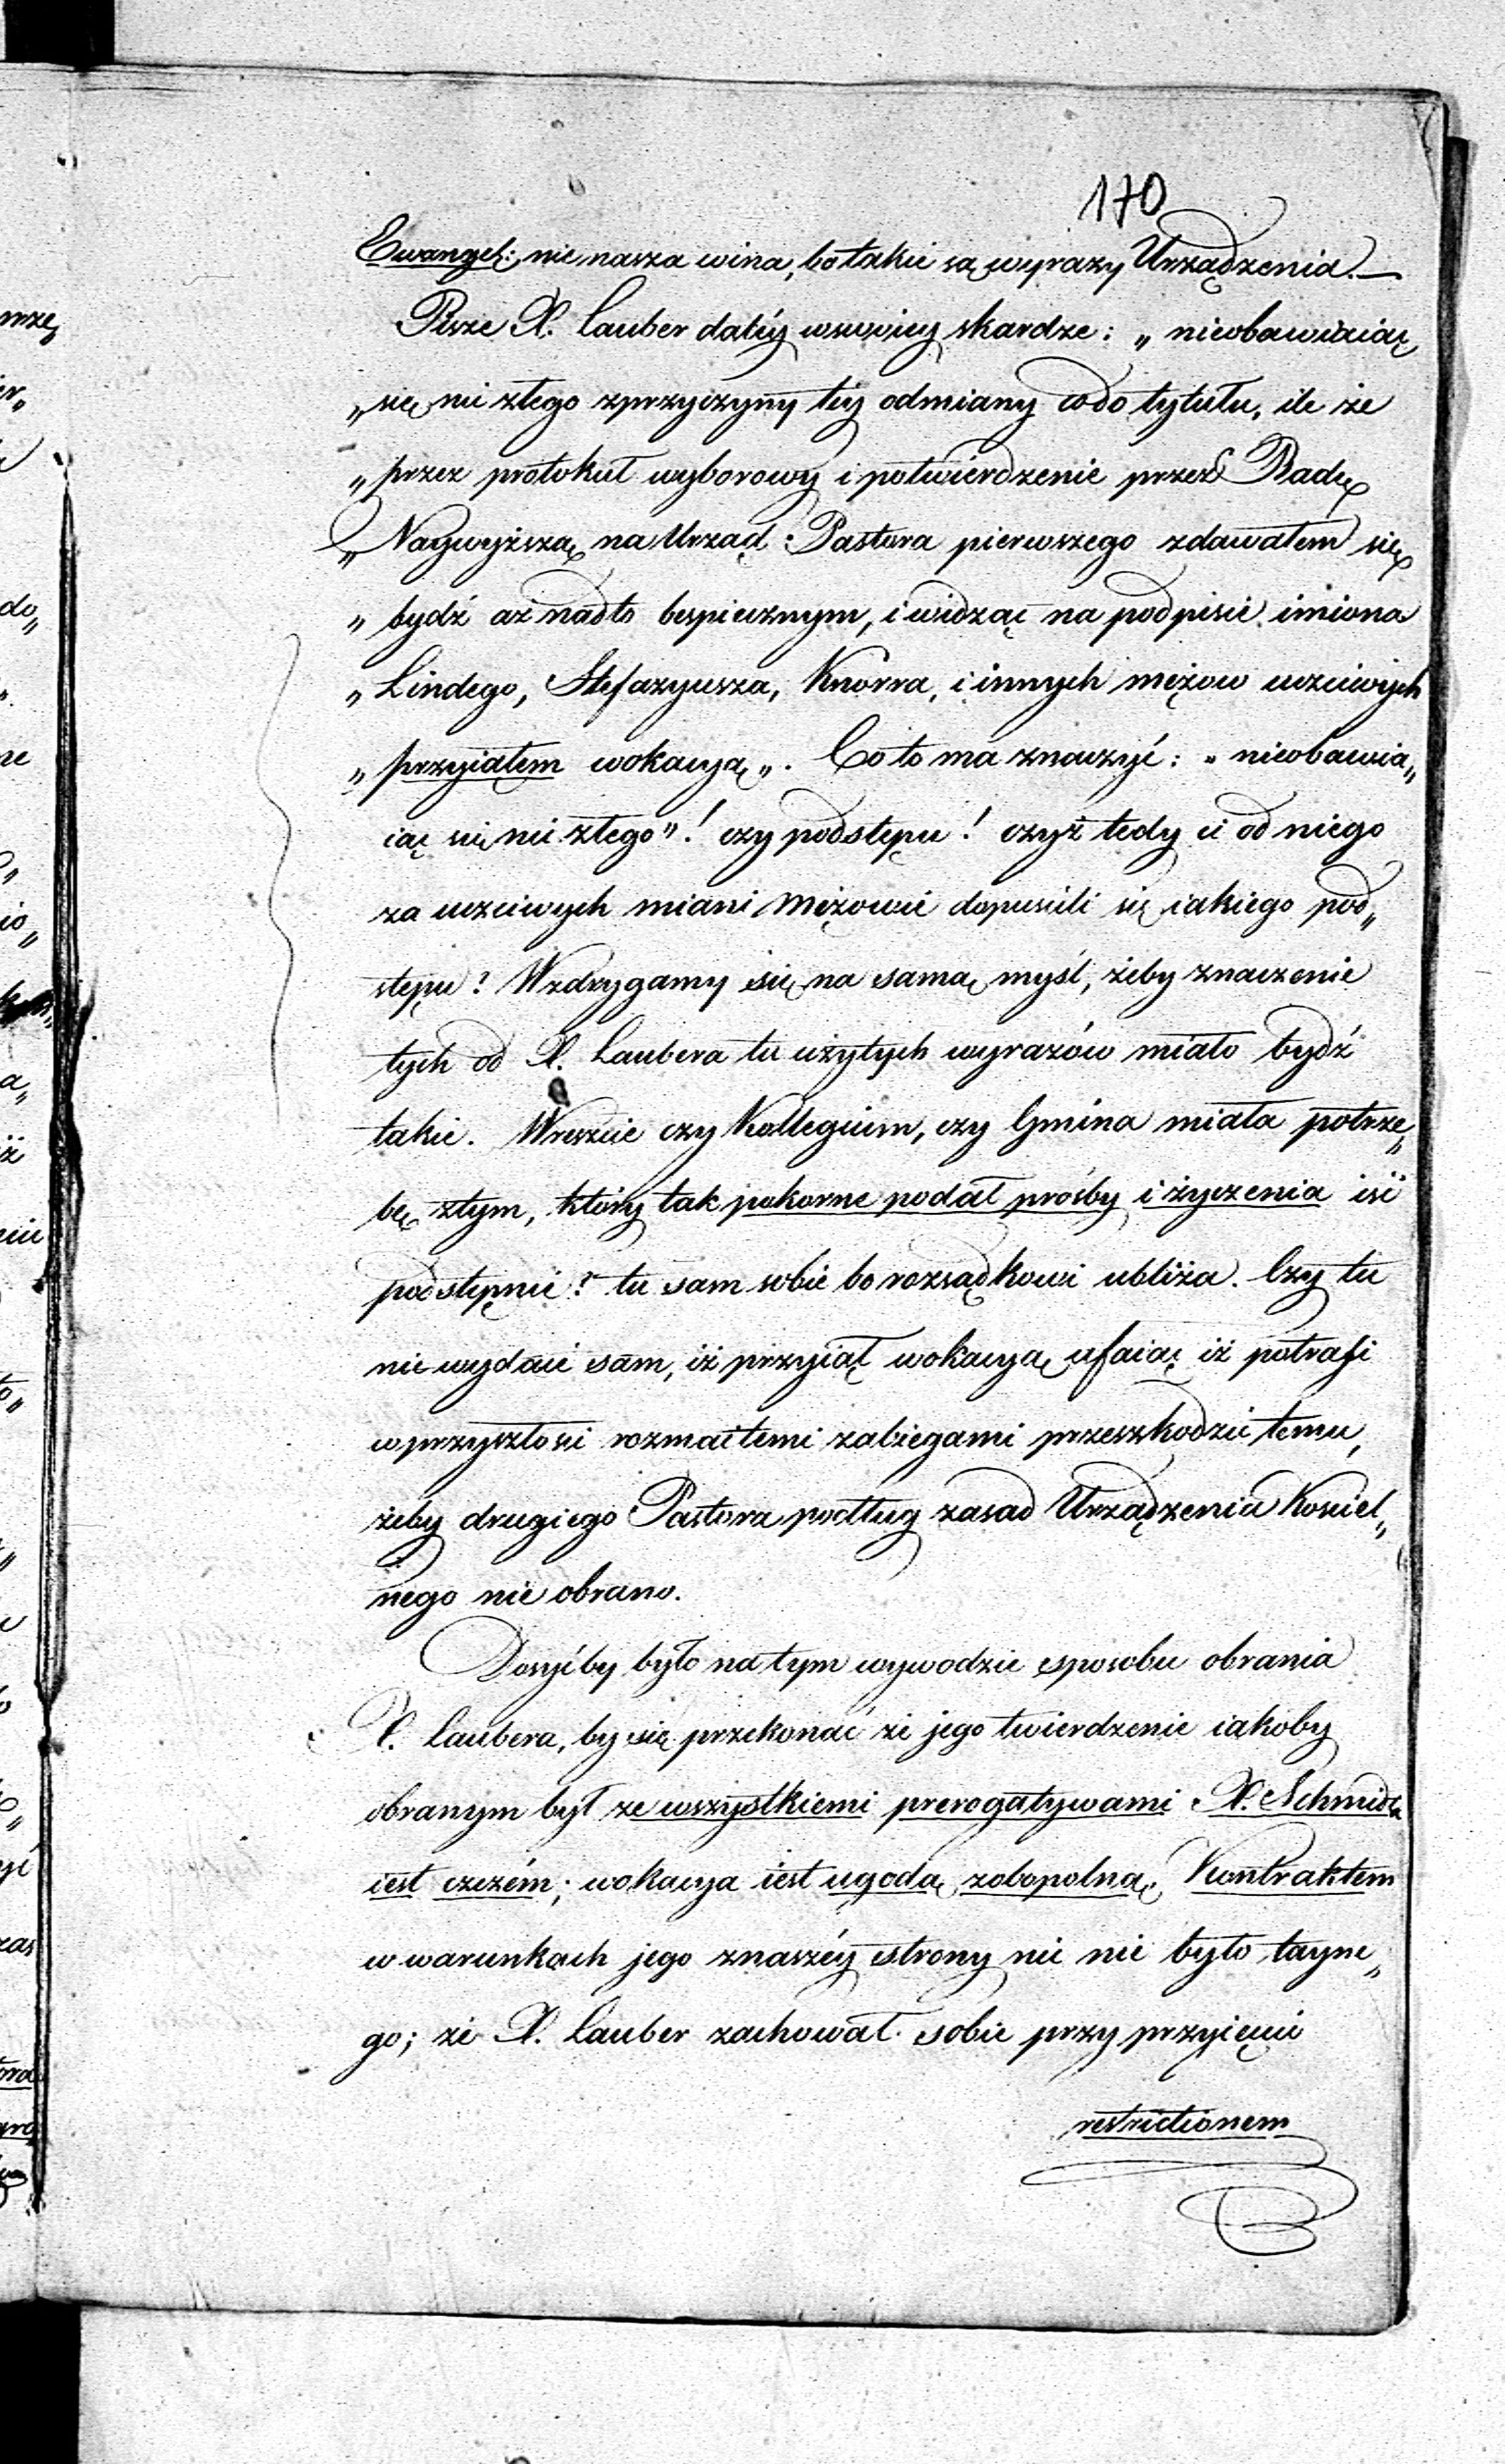 170
Ewangel: nie nasza wina, bo takie są wyrazy Urządzenia. —
Pisze X. Lauber daléy w swoiey skardze: „ nieobawiaiąc
„ się nic złego z przyczyny téy odmiany co do tytułu, ile że
„ przez protokuł wyborowy i potwierdzenie przez Radę
„ Naywyższą na Urząd Pastora pierwszego zdawałem się
„ bydź aż nadto bespiecznym, i widząc na podpisie imiona
„ Lindego, Stefazyusza, Knorra, i innych mężow uczciwych
„ przyiałem wokacyą „. Co to ma znaczyć: „ nieobawia„
iąc się nic złego"! czy podstępu! czyż tedy ci od niego
za uczciwych miani Mężowie dopuścili się iakiego pod„
stępu? Wzdrygamy się na samą myśl, żeby znaczenie
tych od X. Laubera tu użytych wyrazów miało bydź
takie. Wreszcie czy Kollegium, czy Gmina miała potrze„
bę z tym, który tak pokorne podał prośby i życzenia iśċ
podstępnie? tu sam sobie bo rozsądkowi ubliża. Czy tu
nie wydaie sam, iż przyiął wokacyą ufaiąc iż potrafi
w przyszłości rozmaitemi zabiegami przeszkodzić temu,
żeby drugiego Pastora podług zasad Urządzenia Kościel„
nego nie obrano.
Dosyćby było na tym wywodzie sposobu obrania
X. Laubera, by się przekonać że jego twierdzenie iakoby
obranym był ze wszystkiemi prerogatywami X. Schmidta
iest czczém; wokacya iest ugodą zobopolną, Kontraktem
w warunkach jego z naszéy strony nic nie było tayne„
go; że X. Lauber zachował sobie przy przyięciu
restrictionem